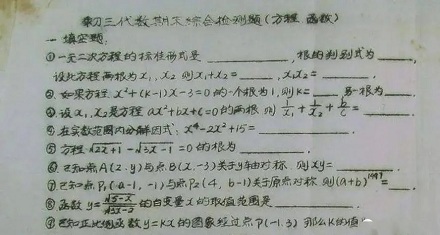 初三代数期末综合检测题(方程 函数)
一 填空题:
①一元二次方程的标准形式是______,根的判别式为____
设此方程两根为x₁,x₂则x₁+x₂=______,x₁x₂=______.
②如果方程x²+(k-1)x-3=0的一个根为1,则k=___另一根为___
③设x₁,x₂是方程ax²+bx+c=0的两根 则1/x₁+1/x₂+b/c=____
④在实数范围内分解因式:x⁴-2x²+15=______
⑤方程√2x+1-√3x-1=0的根为______
⑥已知点A(2,y)与点B(x,-3)关于y轴对称.则xy=______
⑦已知点P₁(a-1,-1)与点P₂(4,b-1)关于原点对称 则(a+b)¹⁹⁹⁹=___
⑧函数y=√5-x/√3x-2的自变量x的取值范围是______
⑨已知正比例函数y=kx的图象经过点P(-1,3)那么k的值